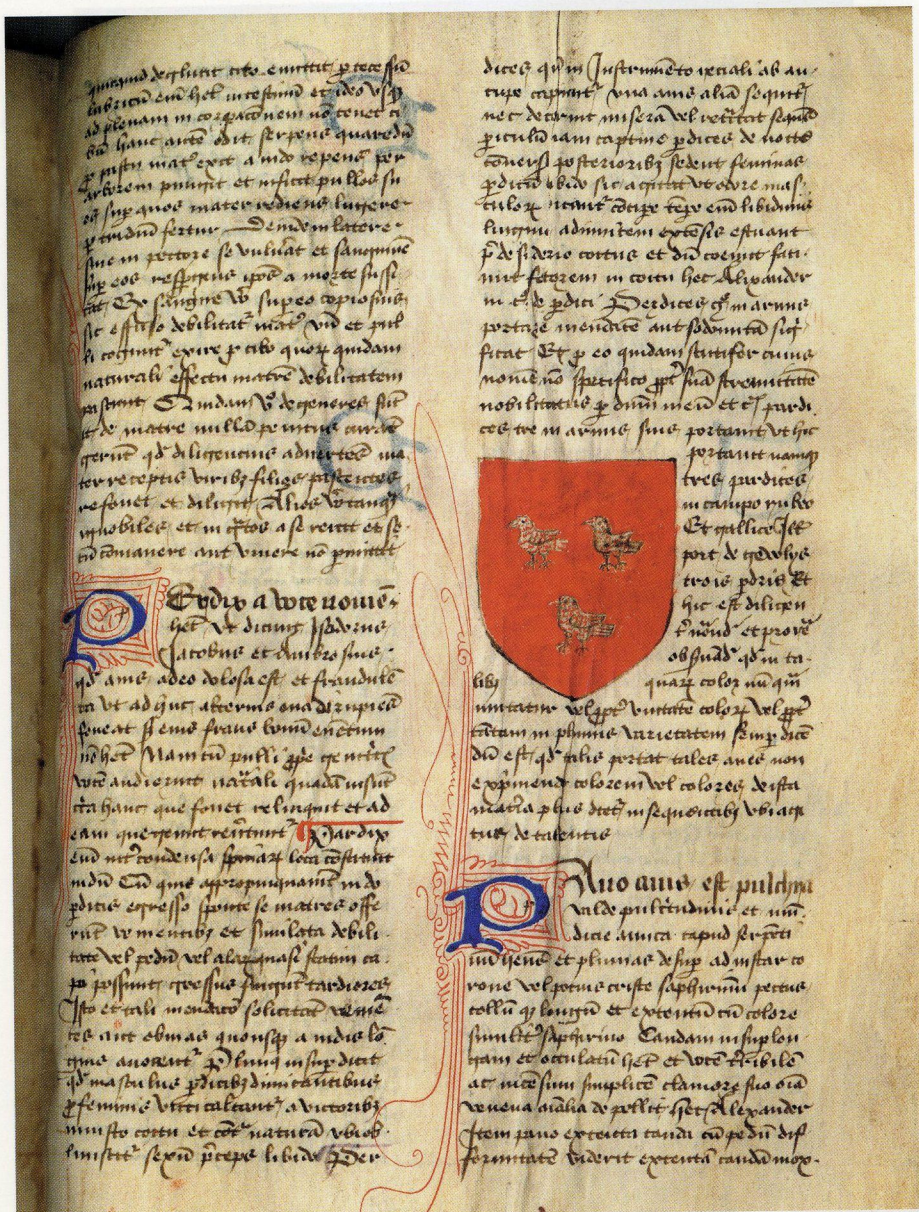 quicquid deglutit cito emittit p
lubricũ em̃ het intestinũ et ideo vsq
ad plenam in corpacõnem no tenet ci
bũ hanc autẽ odit serpens quare dũ
p pastu mat exit a nido repens per
arborem pungit et inficit pullos su
os sup quos mater rediens lugere
p triduũ fertur Deinde in latere
siue in pectore se vulnãt et sanguinẽ
sup eos respgens ipõs a morte susci
tat Ex sãguine vº sup eo copiosius
sic effuso debilitatr matr vñ et pul
li cogũtr exire p cibo quorꝝ quidam
naturali effectu matrẽ debilitatem
pascunt Quidam vº degeneres sũt
qd de matre nullã penitus curam
gerũt qd diligencius aduertẽs ma
ter receptis viribꝫ filios pascentes
refouet et diligit Alios vº tanqꝫ
ignobiles et in grõs a se reicit et se
cũ cõmanere aut viuere nõ pmittit
Perdix a voce nomẽ
het vt dicũt Isidorus
Jacobus et Ambrosius
qd auis adeo dolosa est et fraudulẽ
ta vt ad huc alterius oua diripiẽs
foueat sꝫ eius fraus bonũ euentum
nõ het Nam cũ pulli pp̃e genitᵉcͥs
vocẽ audierint nat̃ali quadã instiñ
ctu hanc que fouet relinqũt et ad
eam que genuit reũtũtr Pardix
em̃ int̃ condensa spinarꝝ loca cõstruit
nidũ Cũ quis appropinquauit nido
pdicis egresse sponte se matres offe
rũt venientibꝫ et simulata debili
tate vel pedũ vel alarꝝ quasi statim ca
pi possunt gressus fingũt tardiores
Isto et tali mendacio solicitãt venie
tes aut obuias quousqꝫ a nidis lõ
gius auocentr Plinius insup dicit
qd masculus pdicibꝫ dimicantibus
p feminis victi calcantr a victoribꝫ
iniusto coitu et cõtr naturã vbi ob
liuiscitr sexũ pceps libido Per
dices qñ in Instrumẽto speciali ab au
cupe capiuntr vna auis aliã sequitr
nec declinit miserã vel ret̃dat sequẽs
piculũ iam captiue pdices de nocte
cõuersis posterioribꝫ sedent feminas
pdicũ libido sic agitat vt odore mas
culorꝝ dicãtr cõcipe tpẽ em̃ libidinis
lingua admittem extẽsis estuant
p desiderio coitus et dũ coeũt faci
unt fetorem in coitu hec Alexander
in cº de pdici Perdices gº in armis
portare mendacẽ aut sodomitã sig
ficat Et p eo quidam
nomẽ nõ spẽcifico ppt̃ suã strenuitatẽ
nobilitatus p dñm meũ et tͥ pardi
ces tres in armis suis portauit vt hic
portauit namqꝫ
tres pardices
in campo rubeo
Et gallice Il
port de gewlys
trois pdris Et
hic est diligen
ter uidend et prouĩ
obsuãd qd in ta
libꝫ quarꝝ color nũquã
mutatur vel ppt̃ vnitatẽ colorꝝ vel ppt̃
tãtam in plumis varietatem semp dicẽ
dũ est qd talis portat tales aues non
expimendo colorem vel colores de ista
mat̃ia plus dicetr in sequentibꝫ vbi agi
tur de talentis
Pauo auis est pulchra
valde pulcritudinis et mũ
dicie amica capud serpẽti
nũ hẽns et plumas desup ad instar co
rone vel potius criste saphirinũ pectus
collũ qꝫ longũ et extentũ cũ colore
similitᵉ saphirino Caudam insup lon
gam et occulatũ het et vocẽ t̃ribilẽ
ac incessum simplicẽ clamore suo oĩa
venena aĩalia depellit hec Alexander
Item pauo extenta cauda cũ pedũ dif
formitatẽ viderit extentã caudã mox